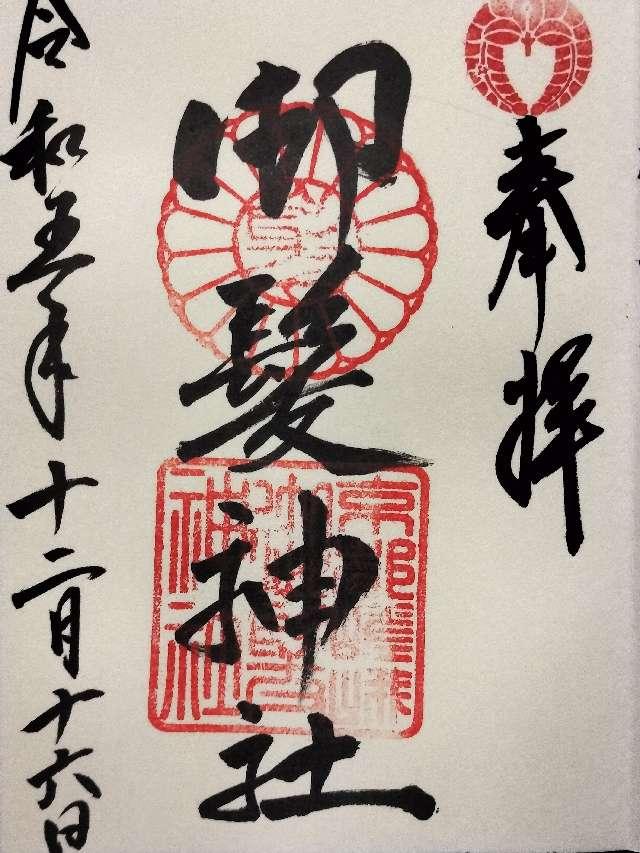 奉拝
御髪神社
令和五年十二月十六日